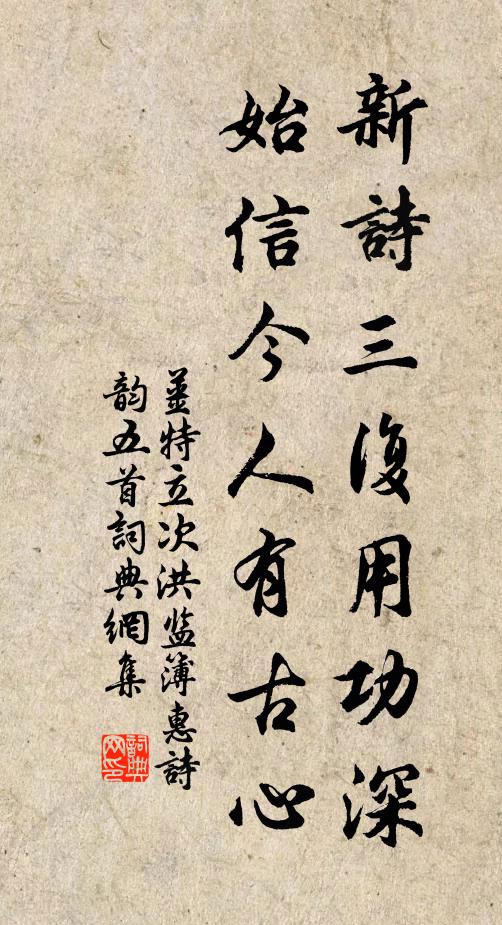 新詩三復用功深
始信今人有古心
姜特立次洪监簿惠詩
韵五首詞典網集
詞典网印